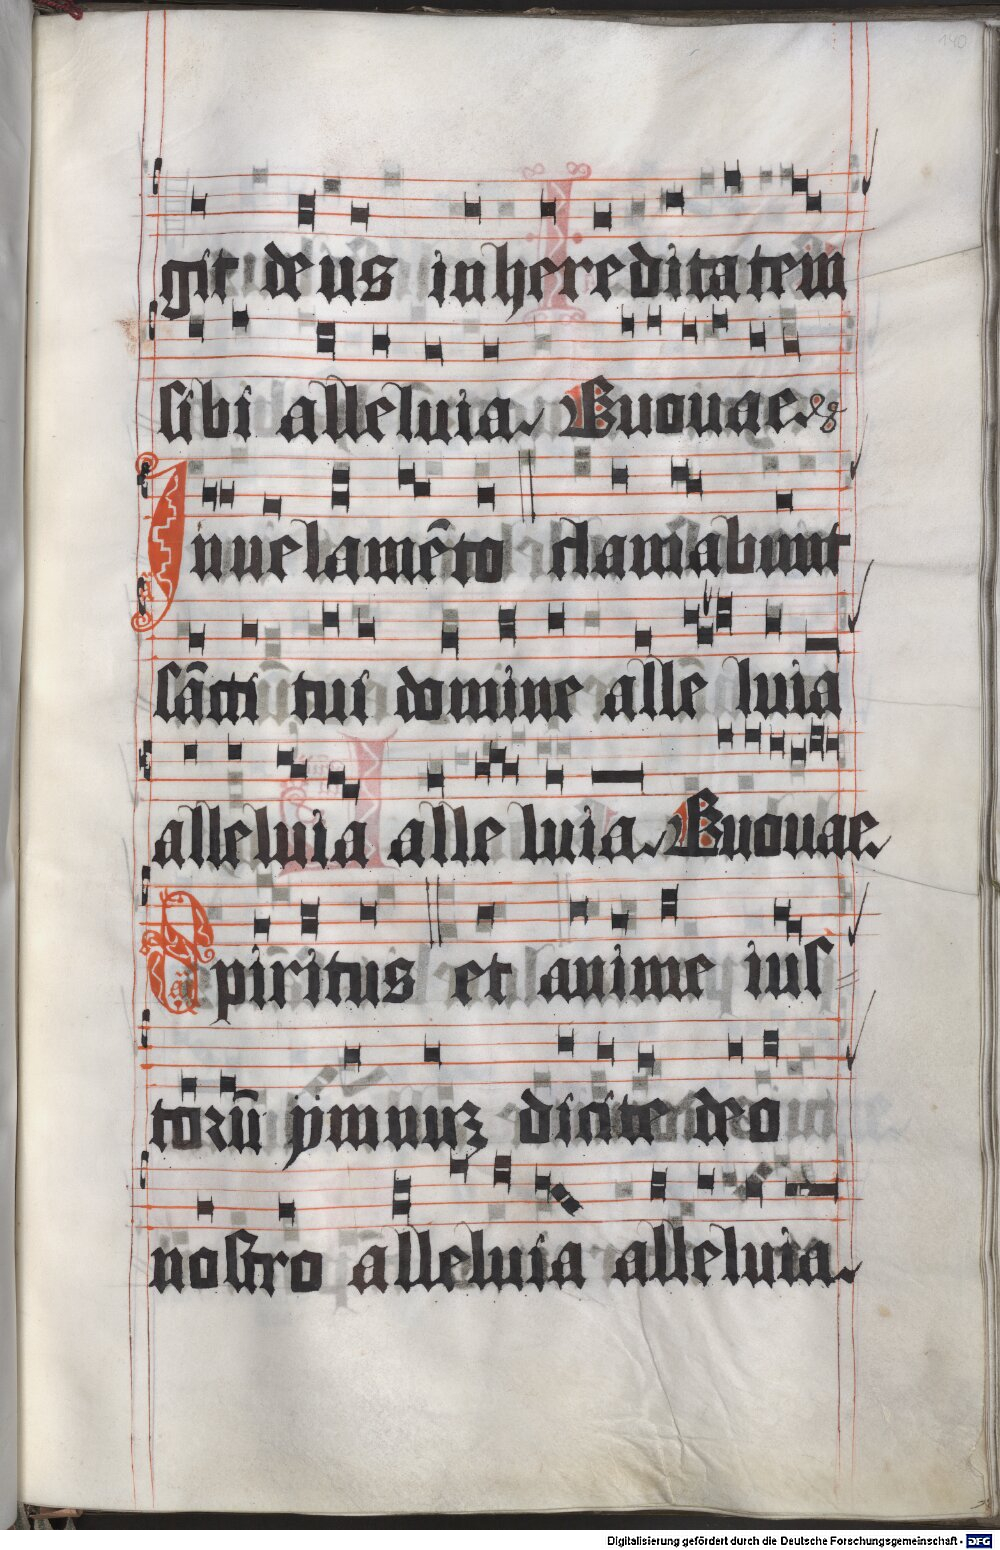 140
git deus in hereditatem
sibi alleluia Euouae
In uelamēto clamabunt
sācti tui domine alle luia
alleluia alle luia Euouae
Spiritus et anime ius
torū ymnuz dicite deo
nostro alleluia alleluia
Digitalisierung gefördert durch die Deutsche Forschungsgemeinschaft - DFG